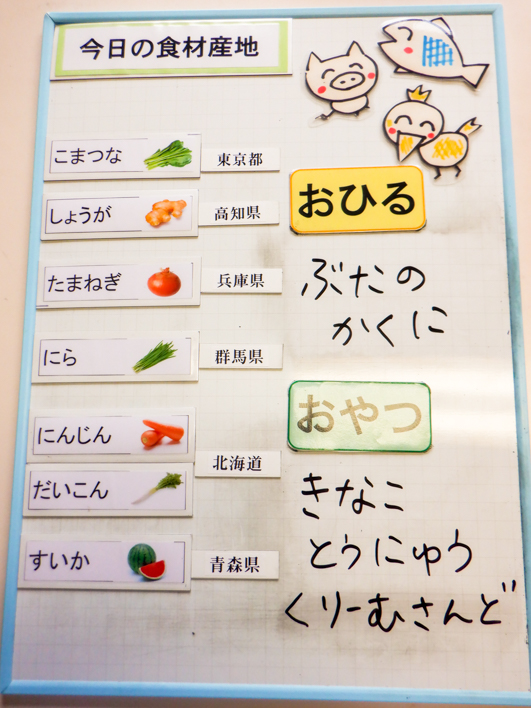 今日の食材産地
こまつな 東京都
しょうが 高知県
たまねぎ 兵庫県
にら 群馬県
にんじん
北海道
だいこん
すいか 青森県
おひる
ぶたの
かくに
おやつ
きなこ
とうにゅう
くりーむさんど